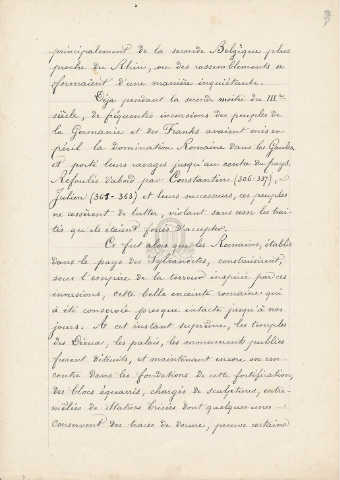 principalement de la seconde Belgique plus
proche du Rhin, où des rassemblements se
formaient d'une manière inquiétante.
Déja pendant la seconde moitié du IIIme
siècle, de fréquentes incursions des peuples de
la Germanie et des Franks avaient mis en
péril la domination Romaine dans les Gaules
et porté leurs ravages jusqu'au centre du pays.
Refoulés d'abord par Constantin (306-337),
Julien (361-363) et leurs successeurs, ces peuples
ne cessèrent de lutter, violant sans cesse les trai-
tés qu'ils étaient forcés d'accepter.
Ce fut alors que les Romains, établis
dans le pays des Sylvanectes, construisirent,
sous l'empire de la terreur inspirée par ces
invasions, cette belle enceinte romaine qui
a été conservée presque intacte jusqu'à nos
jours. A cet instant suprême, les temples
des Dieux, les palais, les monuments publics
furent détruits, et maintenant encore on ren-
contre dans les fondations de cette fortification,
des blocs équarris, chargés de sculptures, entre-
mêlées de statues brisées dont quelques-unes
conservent des traces de dorure, preuve certaine